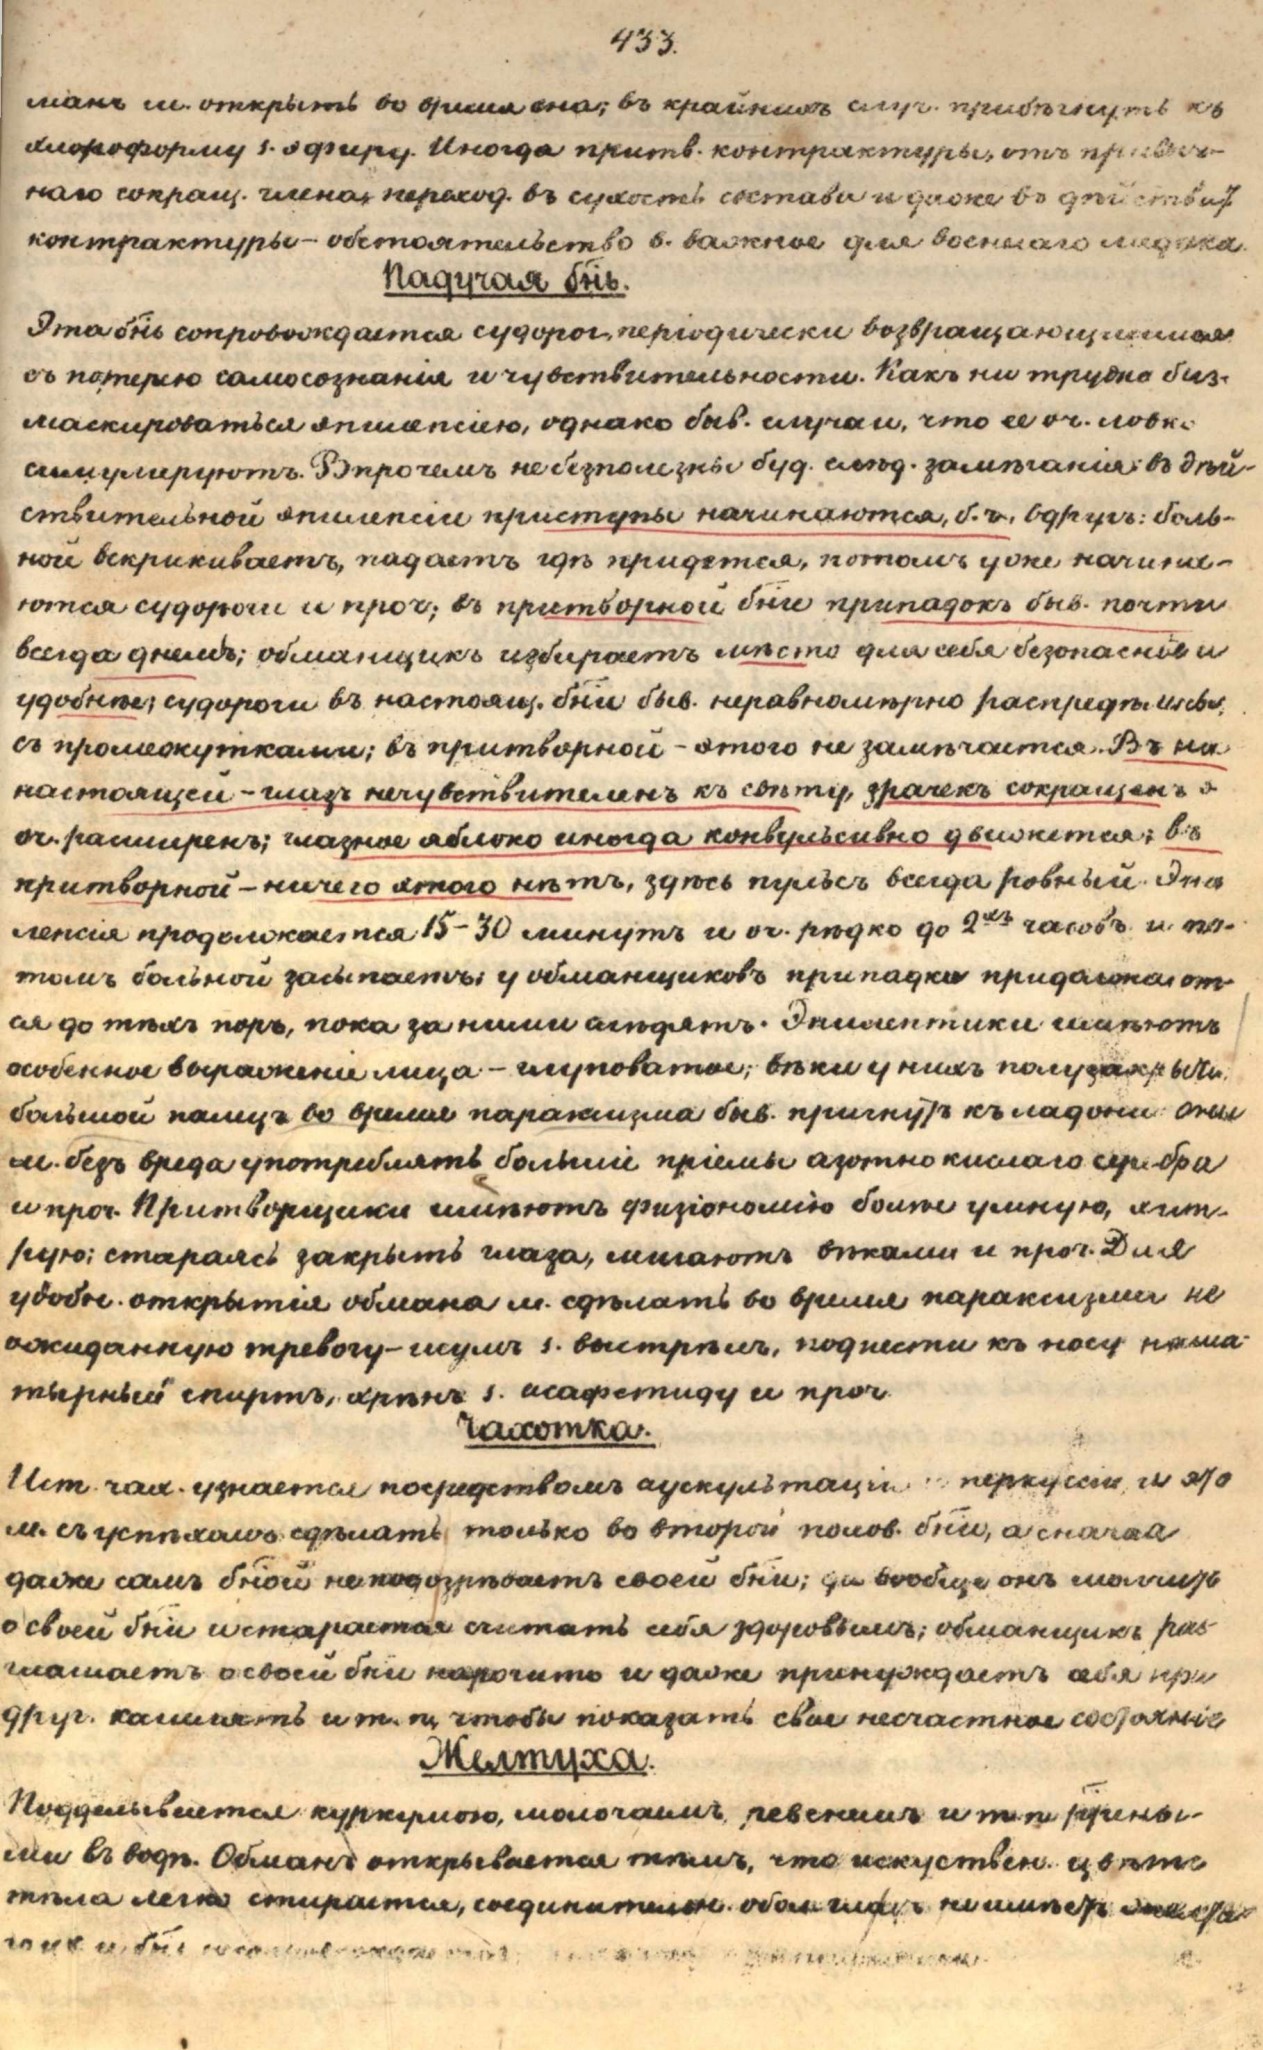 433.
манъ м. открыть во время сна; въ крайнихъ случ. прибѣгнуть къ
хлороформу s. эфиру. Иногда притв. контрактуры, отъ привыч-
наго сокращ. члена, переход. въ сухость состава и даже въ дѣйствит
контрактуры – обстоятельство в. важное для военнаго медика.
Падучая бнь.
Эта бнь сопровождается судорог. періодически возвращающимися
съ потерею самосознанія и чувствительности. Какъ ни трудно
маскироваться эпилепсіею, однако быв. случаи, что ее оч. ловко
симулируютъ. Впрочемъ не безполезны буд. слѣд. замѣчанія: въ дѣй-
ствительной эпилепсіи приступы начинаются, б. ч., вдругъ: боль-
ной вскрикиваетъ, падаетъ гдѣ придется, потомъ уже начина-
ются судороги и проч; въ притворной бни припадокъ быв. почти
всегда днемъ; обманщикъ избираетъ мѣсто для себя безопаснѣе и
удобнѣе; судороги въ настоящ. бни быв. неравномѣрно распредѣлены,
съ промежутками; въ притворной – этого не замѣчается. Въ на
настоящей – глазъ нечувствителенъ къ свѣту, зрачекъ сокращенъ s
оч. расширенъ; глазное яблоко иногда конвульсивно движется; въ
притворной – ничего этого нѣтъ, здѣсь пульсъ всегда ровный. Эпи
лепсія продолжается 15–30 минутъ и оч. рѣдко до 2хъ часовъ и по-
томъ больной засыпаетъ; у обманщиковъ припадки придолжают-
ся до тѣхъ поръ, пока за ними слѣдятъ. Эпилептики имѣютъ
особенное выраженіе лица – глуповатое; вѣки у нихъ полузакрыты,
большой палецъ во время параксизма быв. пригнутъ къ ладони: они
м. безъ вреда употреблять большіе пріемы азотнокислаго серебра
и проч. Притворщики имѣютъ физіономію болѣе умную, хит-
рую; стараясь закрыть глаза, мигаютъ вѣками и проч. Для
удобн. открытія обмана м. сдѣлать во время параксизма не
ожиданную тревогу – шумъ s. выстрѣлъ, поднести къ носу наша-
тырный спиртъ, хрѣнъ s. асафетиду и проч.
Чахотка.
Ист. чах. узнается посредствомъ аускультаціи и перкуссіи, и это
м. съ успѣхомъ сдѣлать только во второй полов. бни, а сначала
даже самъ бной не подозрѣваетъ своей бни; да вообще онъ молчитъ
о своей бни и старается считать себя здоровымъ; обманщикъ раз-
глашаетъ о своей бни нарочито и даже принуждаетъ себя при
друг. кашлять и т. п, чтобы показать свое несчастное состояніе
Желтуха.
Поддѣлывается куркумою, молочаемъ, ревенемъ и т. п.
ми въ водѣ. Обманъ открывается тѣмъ, что искуствен. цвѣтъ
тѣла легко стирается, соединительн. обол. глазъ не имѣетъ